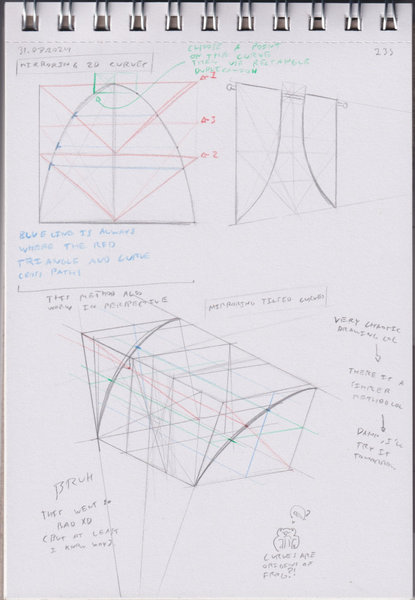 31.08.2024
233
MIRRORING 2D CURVES
CHOOSE A POINT
ON THE CURVE
THEN USE RECTANGLE
DUPLICATION
1
3
2
BLUE LINE IS ALWAYS
WHERE THE RED
TRIANGLE AND CURVE
CROSS PATHS
THIS METHOD ALSO
WORK IN PERSPECTIVE
MIRRORING TILTED CURVES
VERY CHAOTIC
DRAWING LOL
THERE IS A
SIMPLER
METHOD LOL
DAMN, I'LL
TRY IT
TOMORROW
BRUH
THIS WENT SO
BAD XD
(BUT AT LEAST
I KNOW WHY)
CURVES ARE
ORIGINS OF
FROG?!